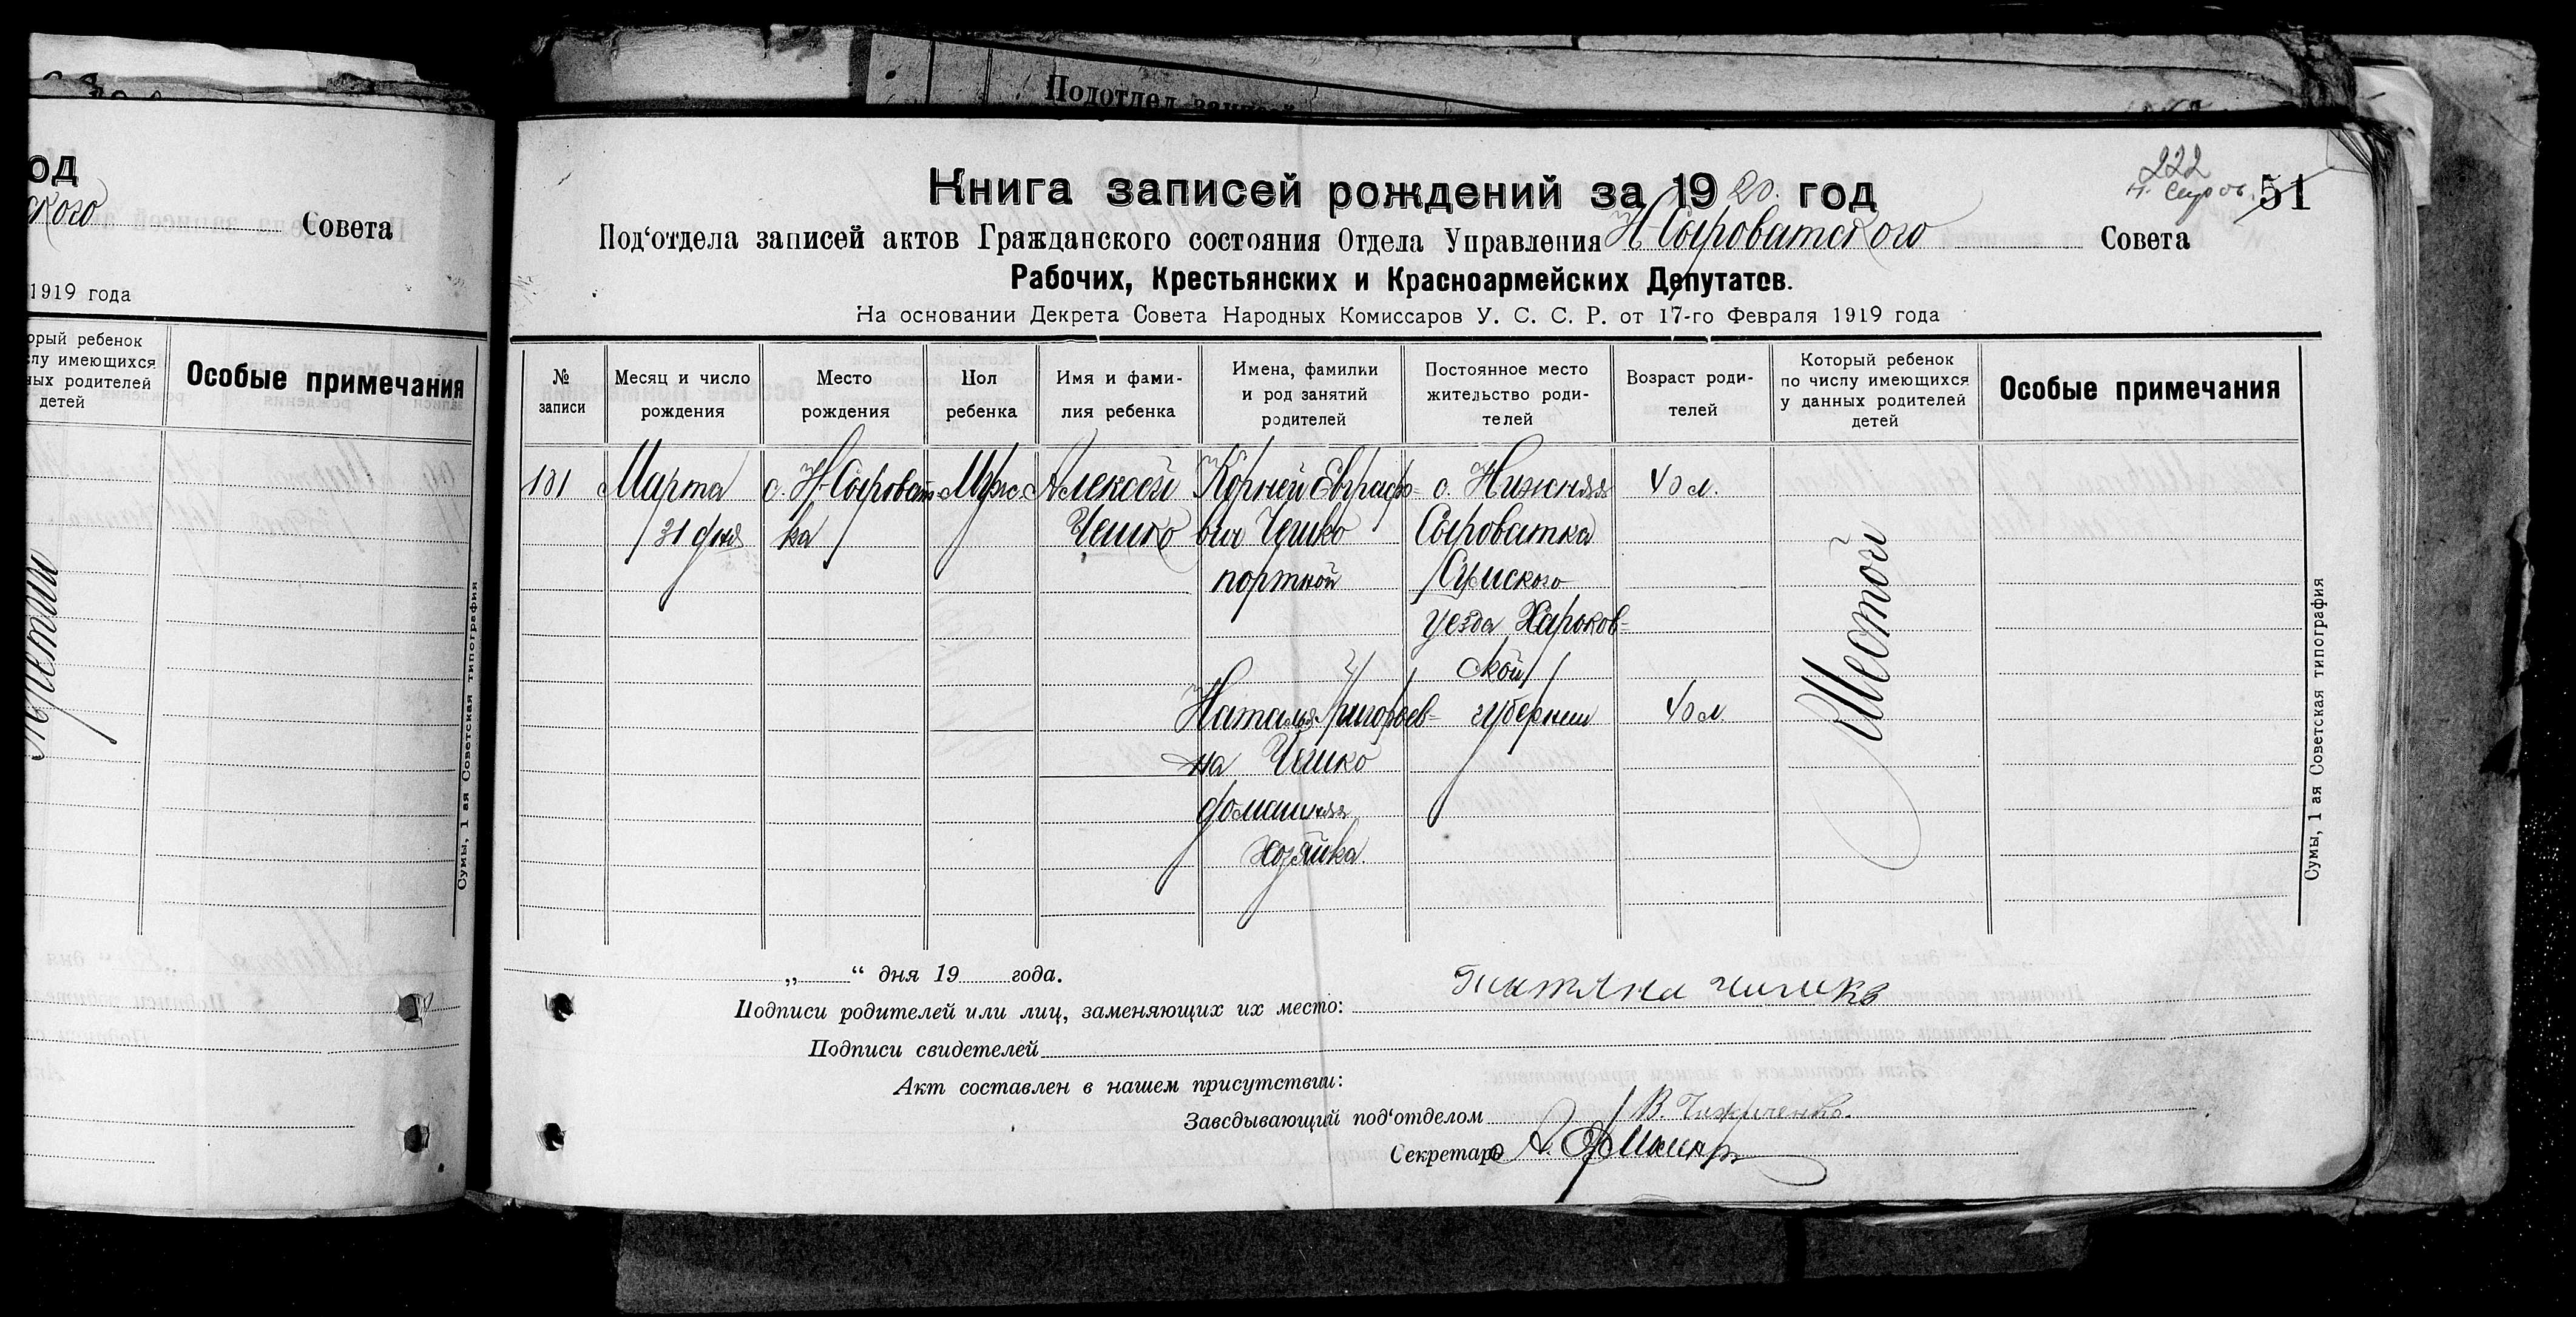 Подотдел
од
ского Совета
1919 года
орый ребенок
слу имеющихся
ных родителей
детей
Особые примечания
третий
Сумы, 1 ая Советская типография
222
Н. Сыров.
51
Книга записей рождений за 1920 год
Под‘отдела записей актов Гражданского состояния Отдела Управления Н Сыроватского Совета
Рабочих, Крестьянских и Красноармейских Депутатов.
На основании Декрета Совета Народных Комиссаров У. С. С. Р. от 17-го Февраля 1919 года
№ записи
Месяц и число рождения
Место рождения
Пол ребенка
Имя и фами-лия ребенка
Имена, фамилии и род занятий родителей
Постоянное место жительство роди-телей
Возраст роди-телей
Который ребенок по числу имеющихся у данных родителей детей
Особые примечания
101 Марта с. Н-Сыроват- Муж. Алексей Корней Евграфо- с. Нижняя 40 л.
31 дня ка Чешко вич Чешко Сыроватка
портной Сумского
уезда Харьков-
ской
Наталья Григорьев- губернии 40 л.
на Чешко
домашняя
хозяйка
Шестой
„ “ дня 19 года.
Подписи родителей или лиц, заменяющих их место: Татяна
Подписи свидетелей
Акт составлен в нашем присутствии:
Заведывающий под‘отделом В.
Секретарь А.
Сумы, 1 ая Советская типография